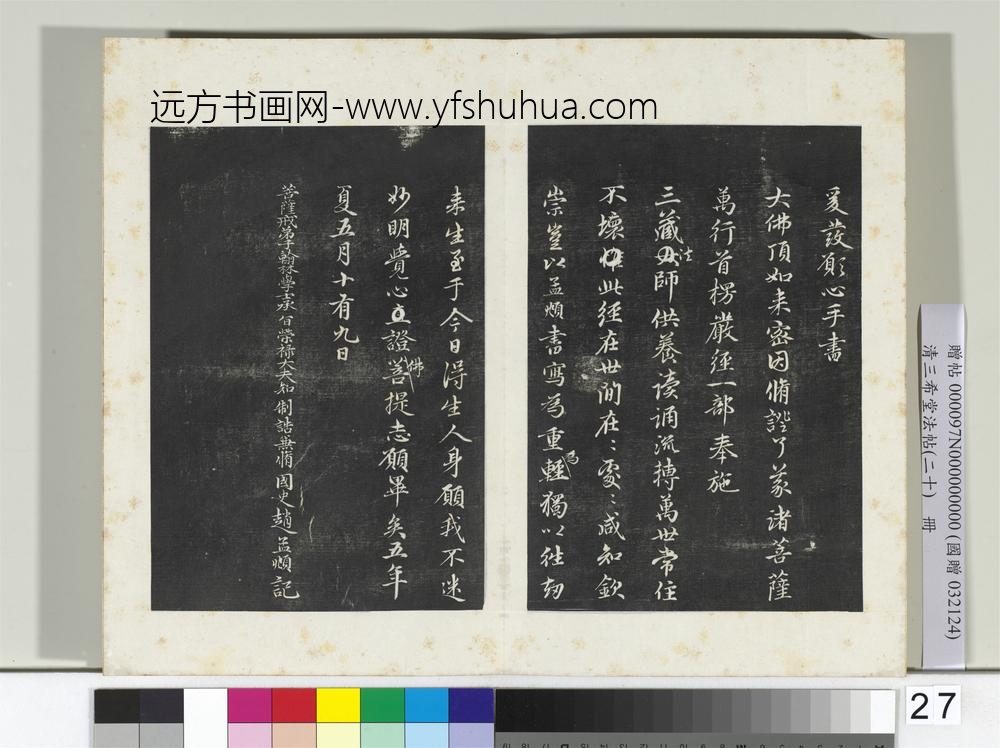 远方书画网-www.yfshuhua.com
爰發願心手書
大佛頂如来密因脩證了義諸菩薩
萬行首楞嚴經一部奉施
三藏法師供養读誦流摶萬世常住
不壞惟此經在世间在〻處〻咸知欽
崇豈以孟頫書寫為重輕獨以往劫
来生至于今日得生人身願我不迷
妙明覺心立證菩提志願畢矣五年
佛
夏五月十有九日
菩薩戒弟子翰林學士承旨榮禄大夫知制誥兼脩國史趙孟頫記
贈帖 000097N000000000 (國贈 032124)
清三希堂法帖(二十) 冊
27